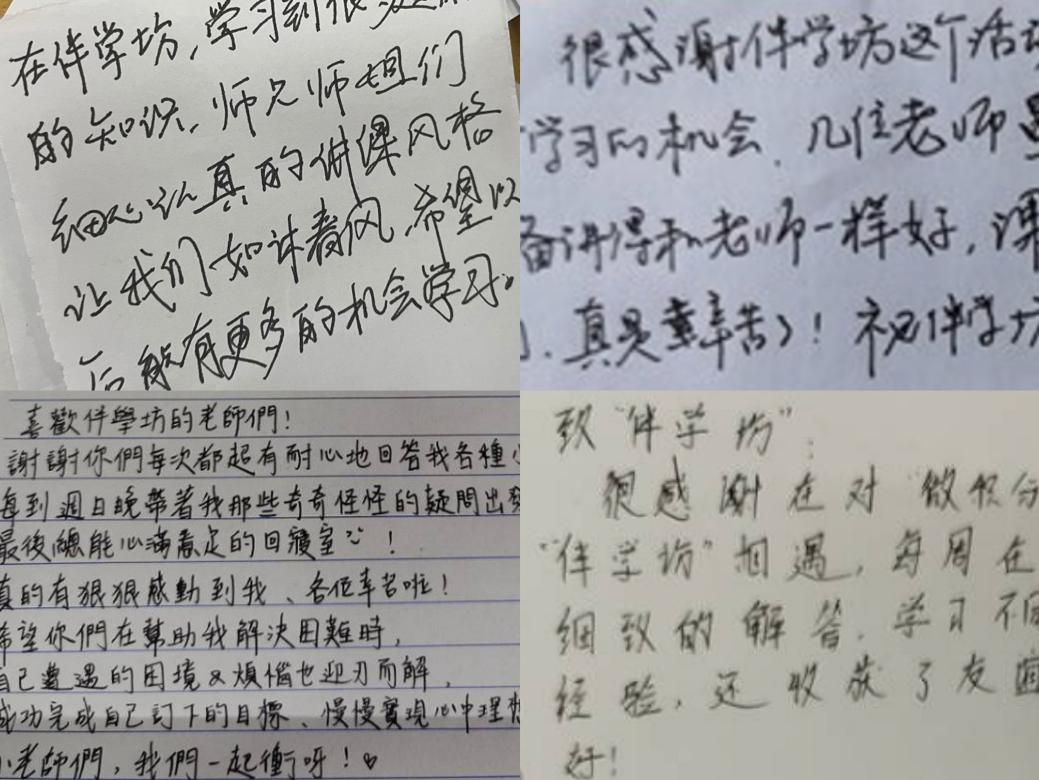 在伴学坊,学习到很
的知识,师兄师姐们
细心认真的讲课风格
让我们如沐春风,希望以
后能有更多的机会学习。
很感谢伴学坊这个活
学习的机会、几位老师
备讲得和老师一样好,课
真是辛苦了!祝伴学坊
喜歡伴學坊的老師們!
謝謝你們每次都超有耐心地回答我各種
每到週日晚帶著我那些奇奇怪怪的疑問出發
最後總能心滿意足的回寢室 !
真的有狠狠感動到我、各位辛苦啦!
希望你們在幫助我解決困難時,
自己遭遇的困境及煩惱也迎刃而解,
成功完成自己訂下的目標、慢慢實現心中理想
小老師們,我們一起衝呀!♡
致“伴学坊”:
很感谢在对 微积分
“伴学坊”相遇,每周在
细致的解答,学习不
经验,还收获了友谊
好!